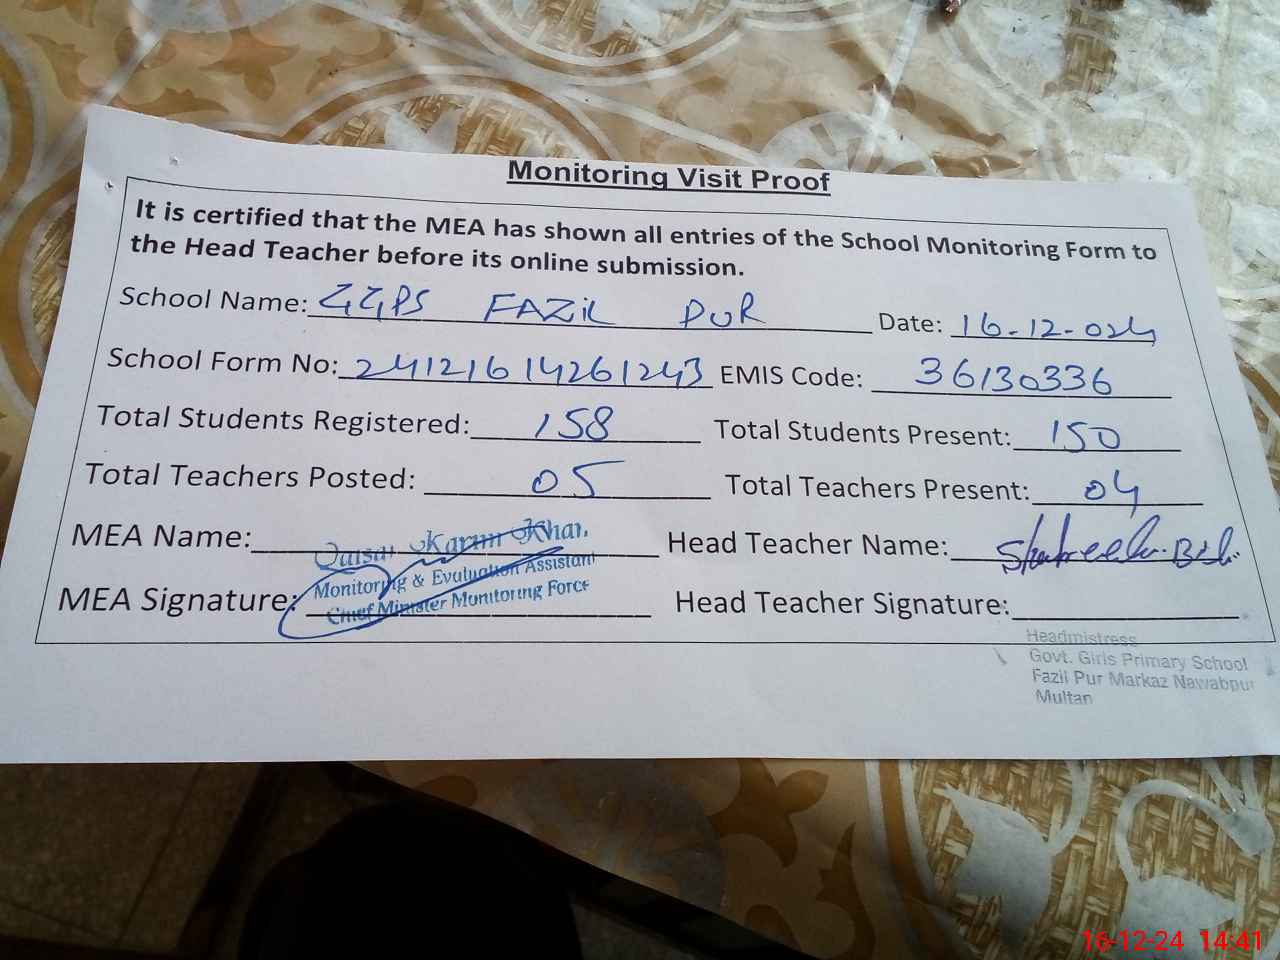 Monitoring Visit Proof
It is certified that the MEA has shown all entries of the School Monitoring Form to
the Head Teacher before its online submission.
School Name: GGPS FAZIL PUR Date: 16-12-024
School Form No: 24121614261243 EMIS Code: 36130336
Total Students Registered: 158 Total Students Present: 150
Total Teachers Posted: 05 Total Teachers Present: 04
MEA Name: Qaisar Karim Khan Head Teacher Name:
Monitoring & Evaluation Assistant
MEA Signature: Chief Minister Monitoring Force Head Teacher Signature:
Headmistress
Govt. Girls Primary School
Fazil Pur Markaz Nawabpur
Multan
16-12-24 14:41